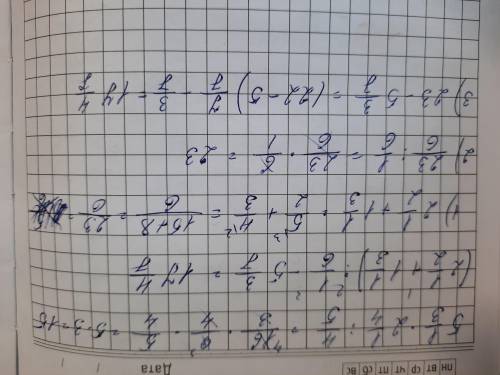 Дата
пн вт ср чт пт сб вс
5 1/3 · 2 1/4 : 4/5 = 16/3 · 9/4 · 5/4 = 5·3=15
(2 1/2 + 1 1/3) : 1/6 - 5 3/7 = 17 4/7
1) 2 1/2 + 1 1/3 = 5/2 + 4/3 = 15+8/6 = 23/6
2) 23/6 : 1/6 = 23/6 · 6/1 = 23
3) 23 - 5 3/7 = (22-5) 7/7 - 3/7 = 17 4/7